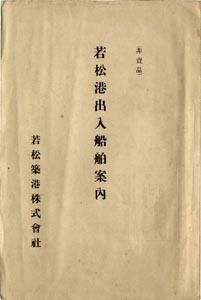 非賣品
若松港出入船舶案內
若松築港株式會社